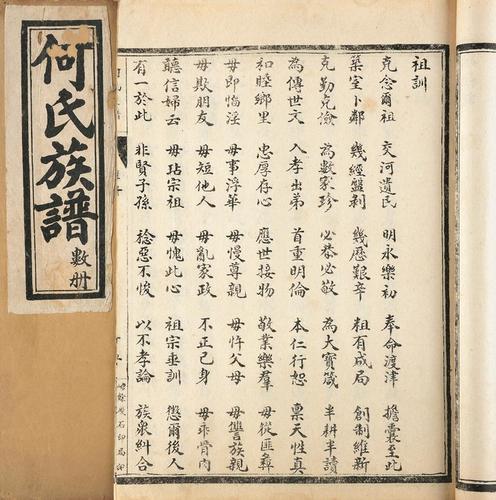 何氏族譜
數冊
祖訓
克念爾祖 交河遺民 明永樂初 奉命渡津 擔囊至此
築室卜鄰 幾經盤剥 幾歷艱辛 粗有成局 創制維新
克勤克儉 為數家珍 必恭必敬 為大寶箴 半耕半讀
為傳世文 入孝出弟 首重明倫 本仁行恕 稟天性真
和睦鄉里 忠厚存心 應世接物 敬業樂羣 毋從匪彝
毋即慆淫 毋事浮華 毋慢尊親 毋忤父母 毋讐族親
毋欺朋友 毋短他人 毋亂家政 不正己身 毋乖骨肉
聽信婦云 毋玷宗祖 毋愧此心 祖宗垂訓 懲爾後人
有一於此 非賢子孫 稔惡不悛 以不孝論 族衆糾合
石印局印